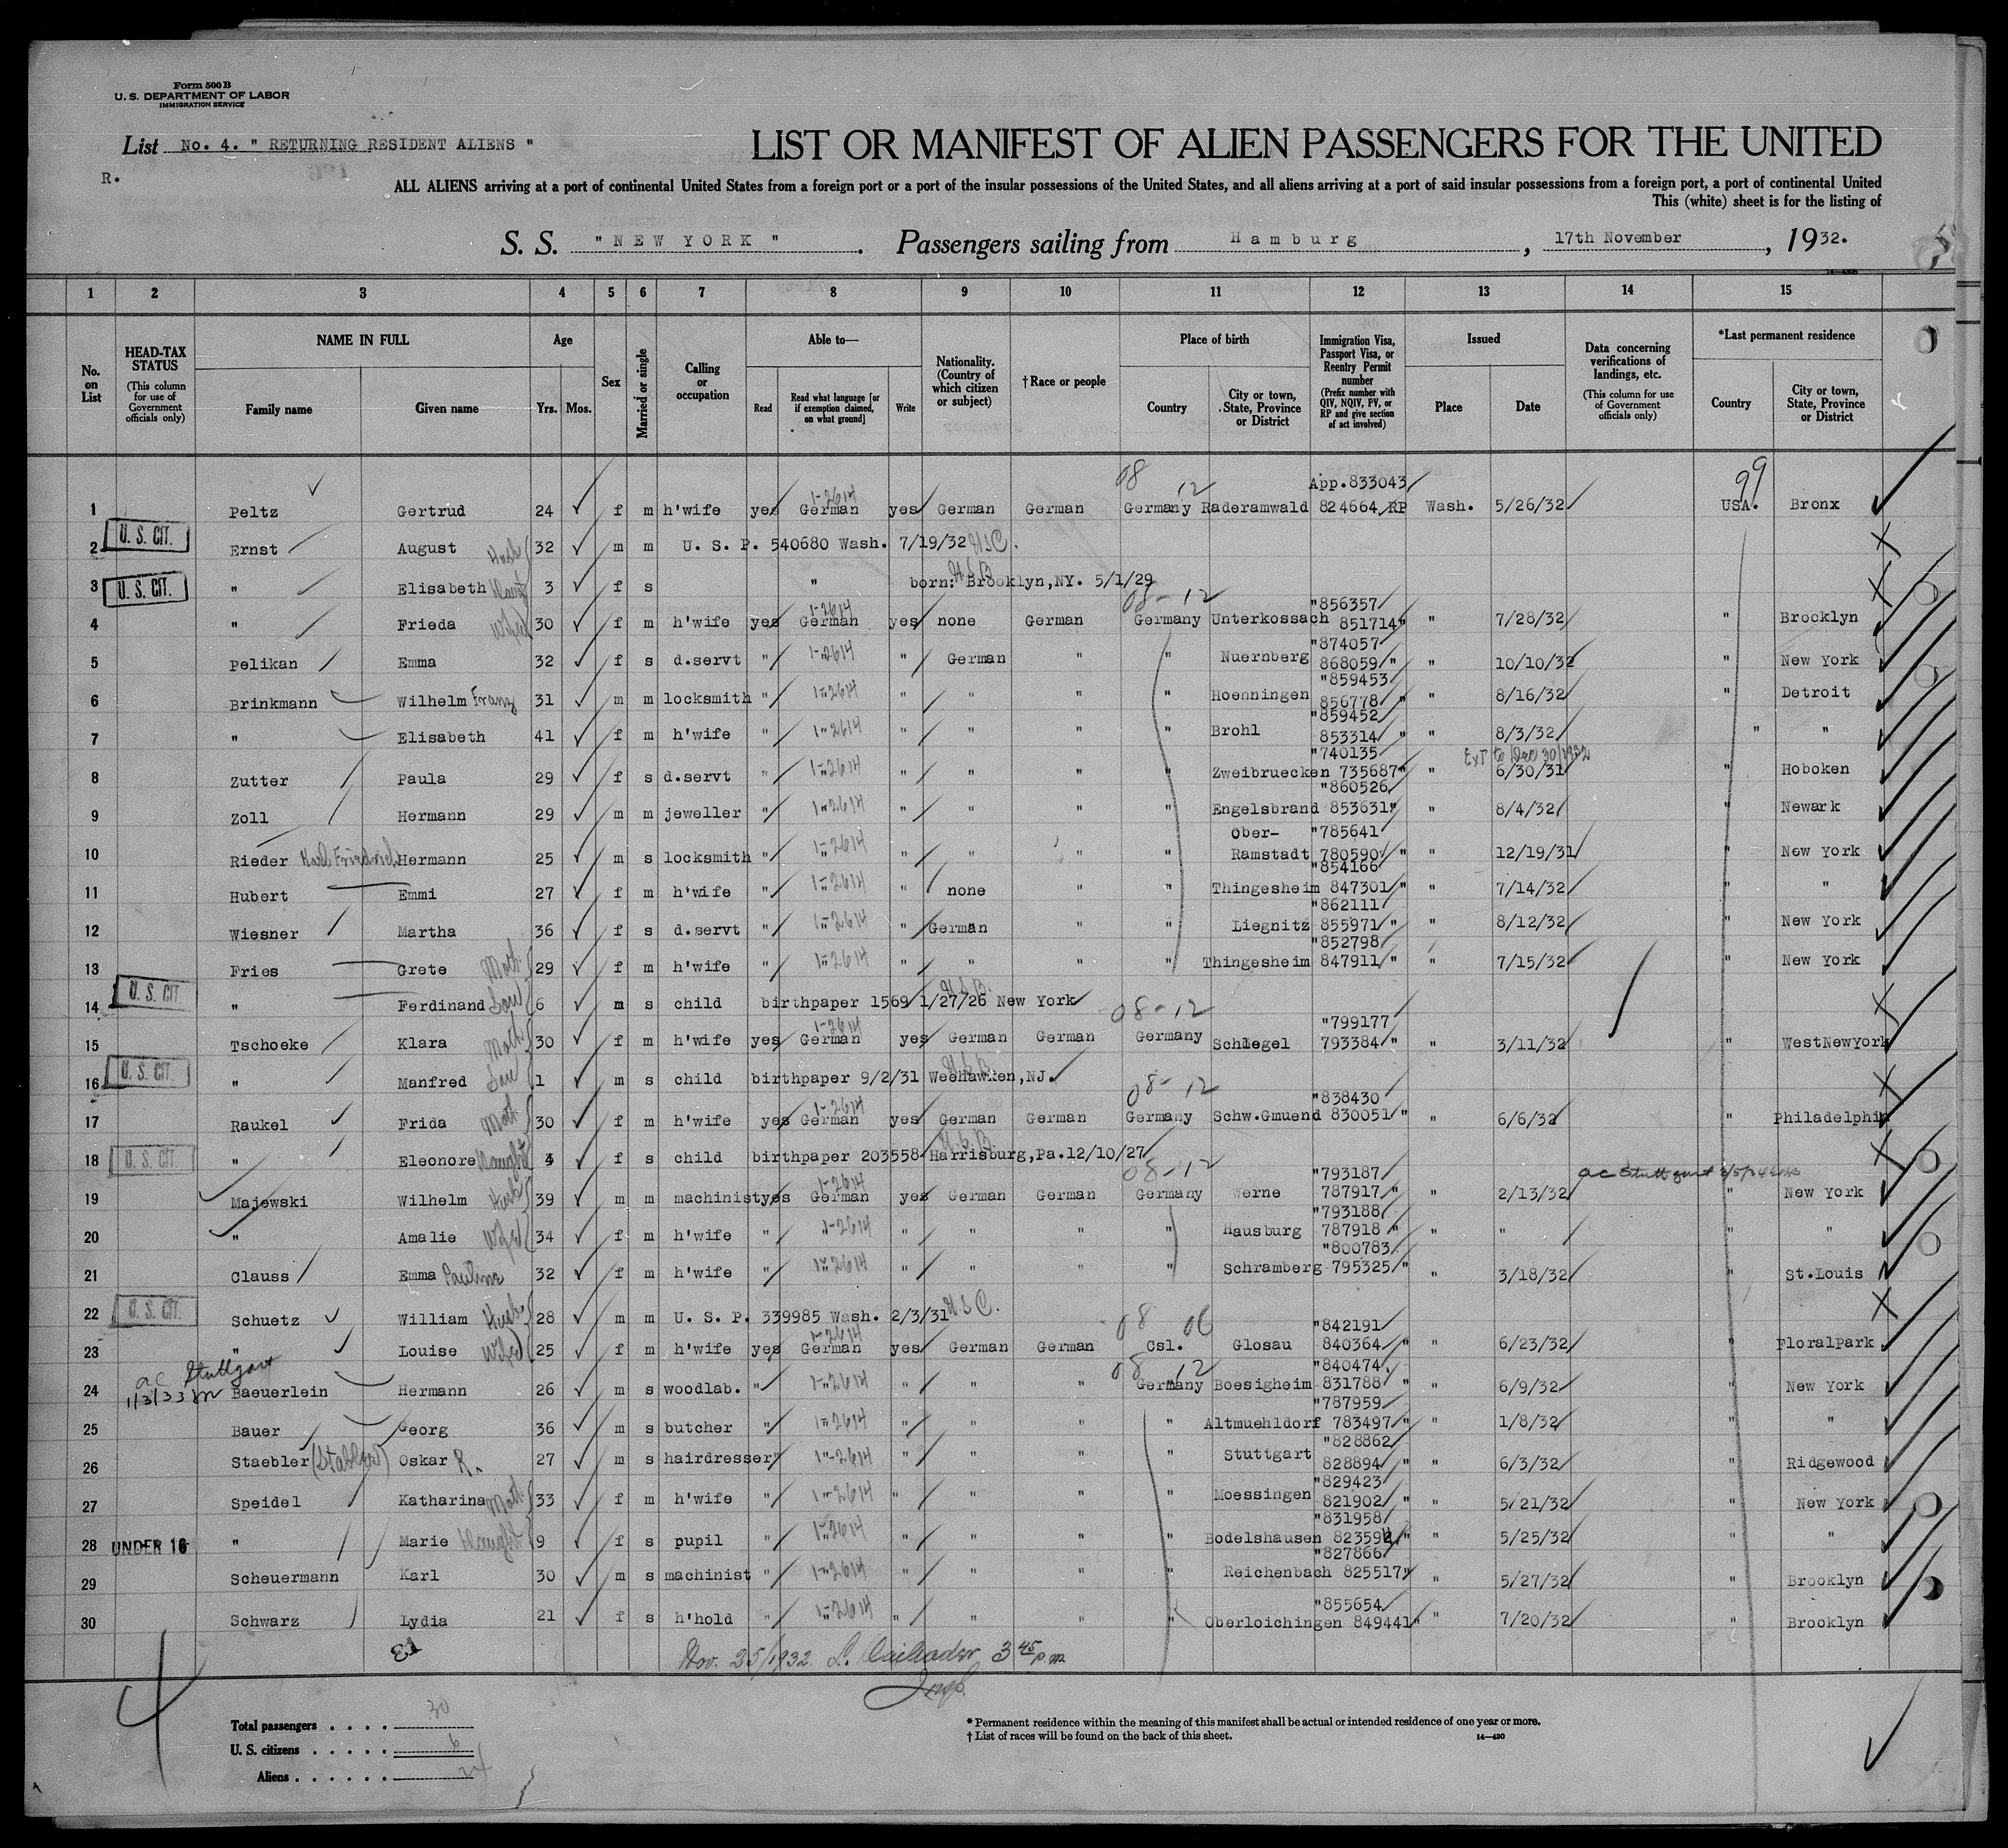 Form 500 B
U. S. DEPARTMENT OF LABOR
IMMIGRATION SERVICE
List No. 4. " RETURNING RESIDENT ALIENS "
R.
LIST OR MANIFEST OF ALIEN PASSENGERS FOR THE UNITED
ALL ALIENS arriving at a port of continental United States from a foreign port or a port of the insular possessions of the United States, and all aliens arriving at a port of said insular possessions from a foreign port, a port of continental United
This (white) sheet is for the listing of
S. S. " NEW YORK ". Passengers sailing from Hamburg, 17th November, 1932.
1 2 3 4 5 6 7 8 9 10 11 12 13 14 15
No. on List
HEAD-TAX STATUS (This column for use of Government officials only)
NAME IN FULL Family name Given name
Age Yrs. Mos.
Sex
Married or single
Calling or occupation
Able to— Read Read what language [or if exemption claimed, on what ground] Write
Nationality. (Country of which citizen or subject)
†Race or people
Place of birth Country City or town, State, Province or District
Immigration Visa, Passport Visa, or Reentry Permit number (Prefix number with QIV, NQIV, PV, or RP and give section of act involved)
Issued Place Date
Data concerning verifications of landings, etc. (This column for use of Government officials only)
*Last permanent residence Country City or town, State, Province or District
08 12 App.833043 99
1 Peltz Gertrud 24 f m h'wife yes German 1-2614 yes German German Germany Raderamwald 824664 RP Wash. 5/26/32 USA. Bronx
2 U. S. CIT. Ernst August Husb 32 m m U. S. P. 540680 Wash. 7/19/32 USC.
3 U. S. CIT. " Elisabeth Daught 3 f s " born: Brooklyn,NY. 5/1/29 U.S.B.
08-12 "856357
4 " Frieda Wife 30 f m h'wife yes German 1-2614 yes none German Germany Unterkossach 851714" " 7/28/32 " Brooklyn
"874057
5 Pelikan Emma 32 f s d.servt " 1-2614 " German " " Nuernberg 868059 " " 10/10/32 " New York
"859453
6 Brinkmann Wilhelm Franz 31 m m locksmith " 1-"2614 " " " " Hoenningen 856778 " " 8/16/32 " Detroit
"859452
7 " Elisabeth 41 f m h'wife " 1-"2614 " " " " Brohl 853314 " " 8/3/32 " "
"740135 Ext to Dec 30/1932
8 Zutter Paula 29 f s d.servt " 1-"2614 " " " " Zweibruecken 735687" " 6/30/31 " Hoboken
"860526
9 Zoll Hermann 29 m m jeweller " 1-"2614 " " " " Engelsbrand 853631" " 8/4/32 " Newark
Ober- "785641
10 Rieder Karl Friedrich Hermann 25 m s locksmith " 1-"2614 " " " " Ramstadt 780590 " " 12/19/31 " New York
"854166
11 Hubert Emmi 27 f m h'wife " 1-"2614 " none " " Thingesheim 847301 " " 7/14/32 " "
"862111
12 Wiesner Martha 36 f s d.servt " 1-"2614 " German " " Liegnitz 855971 " " 8/12/32 " New York
"852798
13 Fries Grete Moth 29 f m h'wife " 1-"2614 " " " " Thingesheim 847911 " " 7/15/32 " New York
14 U. S. CIT " Ferdinand Son 6 m s child birthpaper 1569 1/27/26 New York U.S.B.
08-12 "799177
15 Tschoeke Klara Moth 30 f m h'wife yes German 1-2614 yes German German Germany Schlegel 793384 " " 3/11/32 " WestNewYork
16 U. S. CIT. " Manfred Son 1 m s child birthpaper 9/2/31 Weehawken,NJ. U.S.B.
08-12 "838430
17 Raukel Frida Moth 30 f m h'wife yes German 1-2614 yes German German Germany Schw.Gmuend 830051 " " 6/6/32 " Philadelphia
18 U. S. CIT. " Eleonore Daught 4 f s child birthpaper 203558 Harrisburg,Pa.12/10/27 U.S.B.
08-12 "793187
19 Majewski Wilhelm Husb 39 m m machinist yes German 1-2614 yes German German Germany Werne 787917 " " 2/13/32 ac Stuttgart " New York
"793188
20 " Amalie Wife 34 f m h'wife " 1-2614 " " " " Hausburg 787918 " " " " "
"800783
21 Clauss Emma Pauline 32 f m h'wife " 1-"2614 " " " " Schramberg 795325 " " 3/18/32 " St.Louis
22 U. S. CIT. Schuetz William Husb 28 m m U. S. P. 339985 Wash. 2/3/31 USC.
08 06 "842191
23 " Louise Wife 25 f m h'wife yes German 1-2614 yes German German Csl. Glosau 840364 " " 6/23/32 " FloralPark
08 12 "840474
24 ac Stuttgart 1/3/33 Baeuerlein Hermann 26 m s woodlab. " 1-"2614 " " " Germany Boesigheim 831788 " " 6/9/32 " New York
"787959
25 Bauer Georg 36 m s butcher " 1-"2614 " " " " Altmuehldorf 783497 " " 1/8/32 " "
"828862
26 Staebler (Stabler) Oskar R. 27 m s hairdresser " 1-"2614 " " " " Stuttgart 828894 " " 6/3/32 " Ridgewood
"829423
27 Speidel Katharina Moth 33 f m h'wife " 1-"2614 " " " " Moessingen 821902 " " 5/21/32 " New York
"831958
28 UNDER 16 " Marie Daught 9 f s pupil " 1-"2614 " " " " Bodelshausen " " 5/25/32 " "
"827866
29 Scheuermann Karl 30 m s machinist " 1-"2614 " " " " Reichenbach 825517" " 5/27/32 " Brooklyn
"855654
30 Schwarz Lydia 21 f s h'hold " 1-"2614 " " " " Oberloichingen 849441" " 7/20/32 " Brooklyn
Nov. 25/1932 3 45 p.m.
Insp.
Total passengers . . . . 30
U. S. citizens . . . . . 6
Aliens . . . . . . 24
* Permanent residence within the meaning of this manifest shall be actual or intended residence of one year or more.
† List of races will be found on the back of this sheet. 14—430